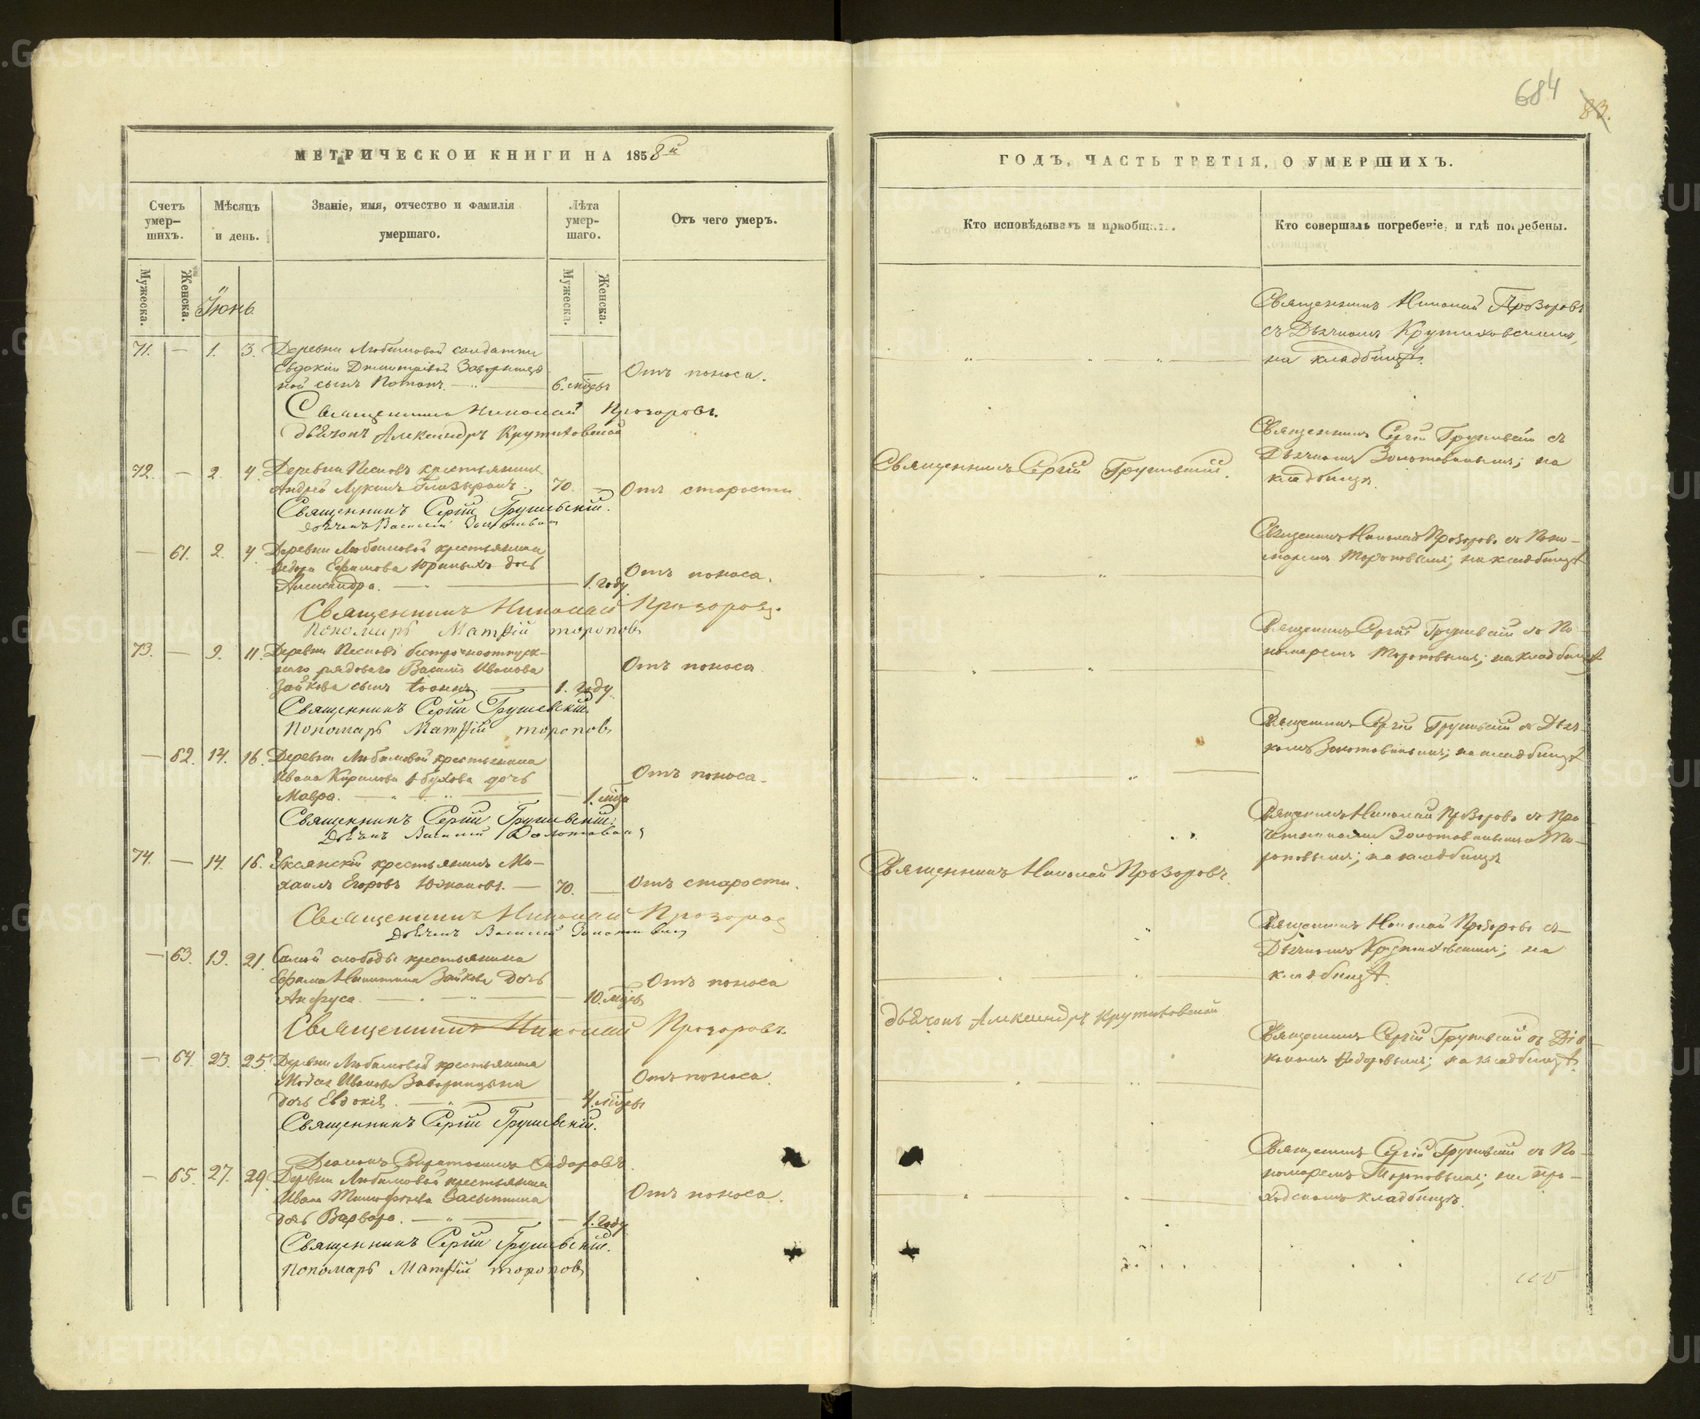 684
83.
МЕТРИЧЕСКОЙ КНИГИ НА 1858й
ГОДЪ, ЧАСТЬ ТРЕТІЯ, О УМЕРШИХЪ.
Счетъ умер-шихъ.
Мѣсяцъ и день.
Званіе, имя, отчество и фамилія умершаго.
Лѣта умер-шаго.
Отъ чего умеръ.
Кто исповѣдывалъ и пріобщалъ.
Кто совершалъ погребеніе, и гдѣ погребены.
Мужеска.
Женска.
Мужеска.
Женска.
Іюнь
71. — 1. 3. Деревни Любимовой солдатки
Евдокіи Димитріевой
ной сынъ Потапъ. 6. мѣсяц Отъ поноса.
Священникъ Николай Прозоровъ
дьячокъ Александръ Крутиховской
Священникъ Николай Прозоровъ
съ Дьячкомъ Крутиховскимъ,
на кладбищѣ.
72. — 2. 4. Деревни Песковъ крестьянинъ
Андрей Лукинъ 70. — Отъ старости.
Священникъ Сергій Грушевскій.
дьячекъ Василій
Священникъ Сергій Грушевскій.
Священникъ Сергій Грушевскій съ
Дьячкомъ Золотавинымъ; на
кладбищѣ.
— 61. 2. 4. Деревни Любимовой крестьянина
Федора Ефимова Юрьиныхъ дочь
Александра. 1. году Отъ поноса.
Священникъ Николай Прозоровъ.
Пономарь Матѳій Тороповъ
Священникъ Николай Прозоровъ съ Поно-
маремъ Тороповымъ; на кладбищѣ
73. — 9. 11. Деревни Песковъ безсрочноотпуск-
наго рядоваго Василія Иванова
Зайкова сынъ Іоаннъ 1. году. Отъ поноса
Священникъ Сергій Грушевскій.
Пономарь Матѳій Тороповъ
Священникъ Сергій Грушевскій съ По-
номаремъ Тороповымъ; на кладбищѣ
— 62. 14. 16. Деревни Любимовой крестьянина
Ивана Кирилова Обухова дочь
Мавра. 1. мѣся Отъ поноса.
Священникъ Сергій Грушевскій;
Дьячекъ Василій Золотавинъ
Священникъ Сергій Грушевскій съ Дьяч-
комъ Золотавинымъ; на кладбищѣ
74. — 14. 16. Уксянскій крестьянинъ Ми-
хаилъ Егоровъ 70. — Отъ старости.
Священникъ Николай Прозоровъ
Дьячекъ Василій Золотавинъ
Священникъ Николай Прозоровъ.
Священникъ Николай Прозоровъ съ При-
четниками Золотавинымъ и То-
роповымъ; на кладбищѣ
— 63. 19. 21. Самой слободы крестьянина
Ефима Никитина Зайкова дочь
Анфуса. 10. мѣсяц Отъ поноса
Священникъ Николай Прозоровъ
дьячокъ Александръ Крутиховской
Священникъ Николай Прозоровъ съ
Дьячкомъ Крутиховскимъ; на
кладбищѣ.
— 64. 23. 25. Деревни Любимовой крестьянина
Ивана Заворницына
дочь Евдокія. 4. мѣсяц Отъ поноса.
Священникъ Сергій Грушевскій.
Священникъ Сергій Грушевскій съ Діа-
кономъ Федоровымъ; на кладбищѣ.
— 65. 27. 29. Деревни Любимовой крестьянина
Ивана Тимофеева
дочь Варвара. 1. году Отъ поноса.
Священникъ Сергій Грушевскій.
Пономарь Матѳій Тороповъ
Священникъ Сергій Грушевскій съ По-
номаремъ Тороповымъ; на при-
ходскомъ кладбищѣ.
METRIKI.GASO-URAL.RU